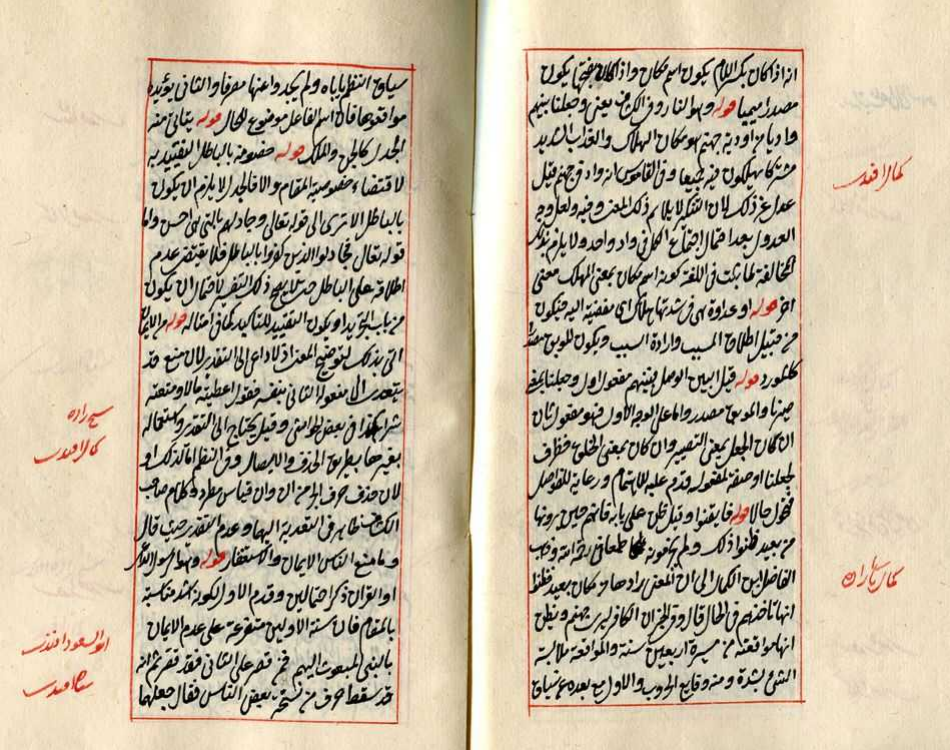 انه اذا كان بكسر اللام يكون اسم مكان واذا كان بفتحها يكون
مصدرا ميميا قوله وهو النار وفى الكرخى يعنى وجعلنا بينهم
واديا من اودية جهنم هو مكان الهلاك والعذاب الشديد
مشتركا يهلكون فيه جميعا وفى القاموس انه واد فى جهنم قيل
عدل عن ذلك لان التنكير لا يلائم ذلك المعنى وفيه ولعل وجه
العدول بعد احتمال اجتماع الكل فى واد واحد ولا يلزم بذلك
المخالفة لما ثبت فى اللغة كونه اسم مكان بمعنى المهلك معنى
اخر قوله او عداوة هى فى شدتها هلاك اى مفضية اليه فيكون
من قبيل اطلاق المسبب وارادة السبب ويكون الموبق مصدرا
كالمورد قوله قيل البين الوصل فبينهم مفعول اول وجعلنا بمعنى
صيرنا والموبق مصدر واما على الوجه الاول فهو مفعول ثان
ان كان الجعل بمعنى التصيير وان كان بمعنى الخلق فظرف
لجعلنا او صفة لمفعوله قدم عليه للاهتمام ورعاية للفواصل
فتحول حالا قوله فايقنوا وقيل ظن على بابه فانهم حين يرونها
من بعيد ظنوا ذلك ولم يكونوا طمعا فى رحمة وذهب
الفاضل ابن الكمال الى ان المعنى رأوها من مكان بعيد فظنوا
انها تأخذهم فى الحال قال وفى الخبر ان الكافر ليرى جهنم ويظن
انها مواقعته من مسيرة اربعين سنة والمواقعة ملابسة
الشئ بشدة ومنه وقايع الحروب والاول مع بعده عن سياق
كمال افندى
كمال پاشا زاده
سياق النظم ياباه ولم يجدوا عنها مصرفا والثانى يؤيده
مواقعوها فان اسم الفاعل موضوع للحال قوله يتأتى منه
الجدل كالجن والملك قوله خصومة بالباطل التقييد به
لاقتضاء خصوصية المقام والا فالجدل لا يلزم ان يكون
بالباطل الا ترى الى قوله تعالى وجادلهم بالتى هى احسن واما
قوله تعالى يجادل الذين كفروا بالباطل فلا يقتضى عدم
اطلاقه على الباطل حتى ذلك التفسير لاحتمال ان يكون
من باب التجريد او يكون التقييد للتأكيد كما فى امثاله قوله من الايمان
اتى بذلك لتوضيح المعنى اذ لا داعى الى التقدير لان منع قد
يتعدى الى مفعوله الثانى بنفسه تقول اعطيته مالا ومنعته
شرابا كذا فى بعض الحواشى وقيل يحتاج الى التقدير واستعماله
بغيرها بطريق الحذف والايصال وفى النظم اما لذلك او
لان حذف حرف الجر من ان وان قياس مطرد وكلام صاحب
الكشاف ظاهر فى التعدية اليها وعدم التقدير حيث قال
وما منع الناس الايمان والاستغفار قوله وهو الرسول الداعى
او القرآن ذكر احتمالين وقدم الاول لكونه اشد مناسبة
بالمقام فان سنة الاولين متفرعة على عدم الايمان
بالنبى المبعوث اليهم فمن قصر على الثانى فقد قصر ثم انه
قد سقط حرف من نسخة بعض الناس فقال جعلها
شيخ زاده
كمال افندى
ابو السعود افندى